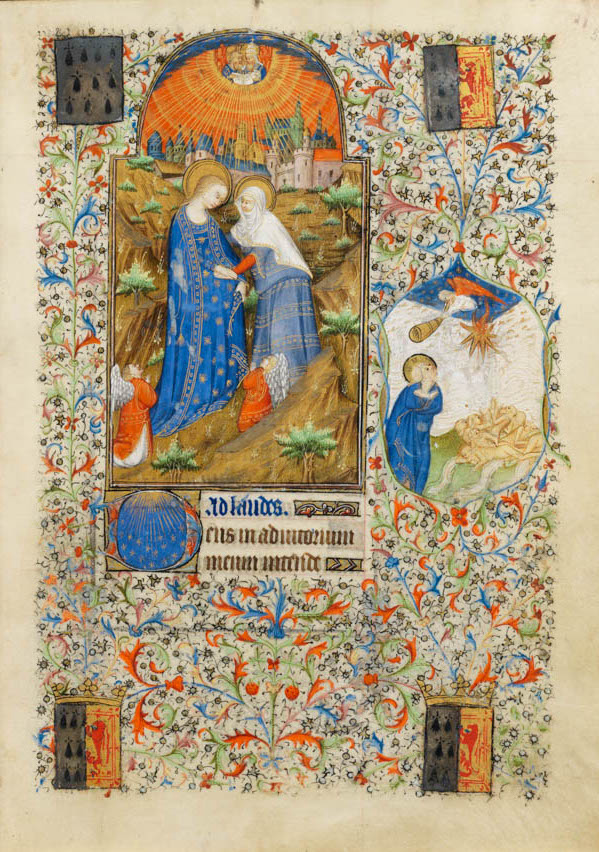 Ad laudes.
Deus in adiutorium
meum intende